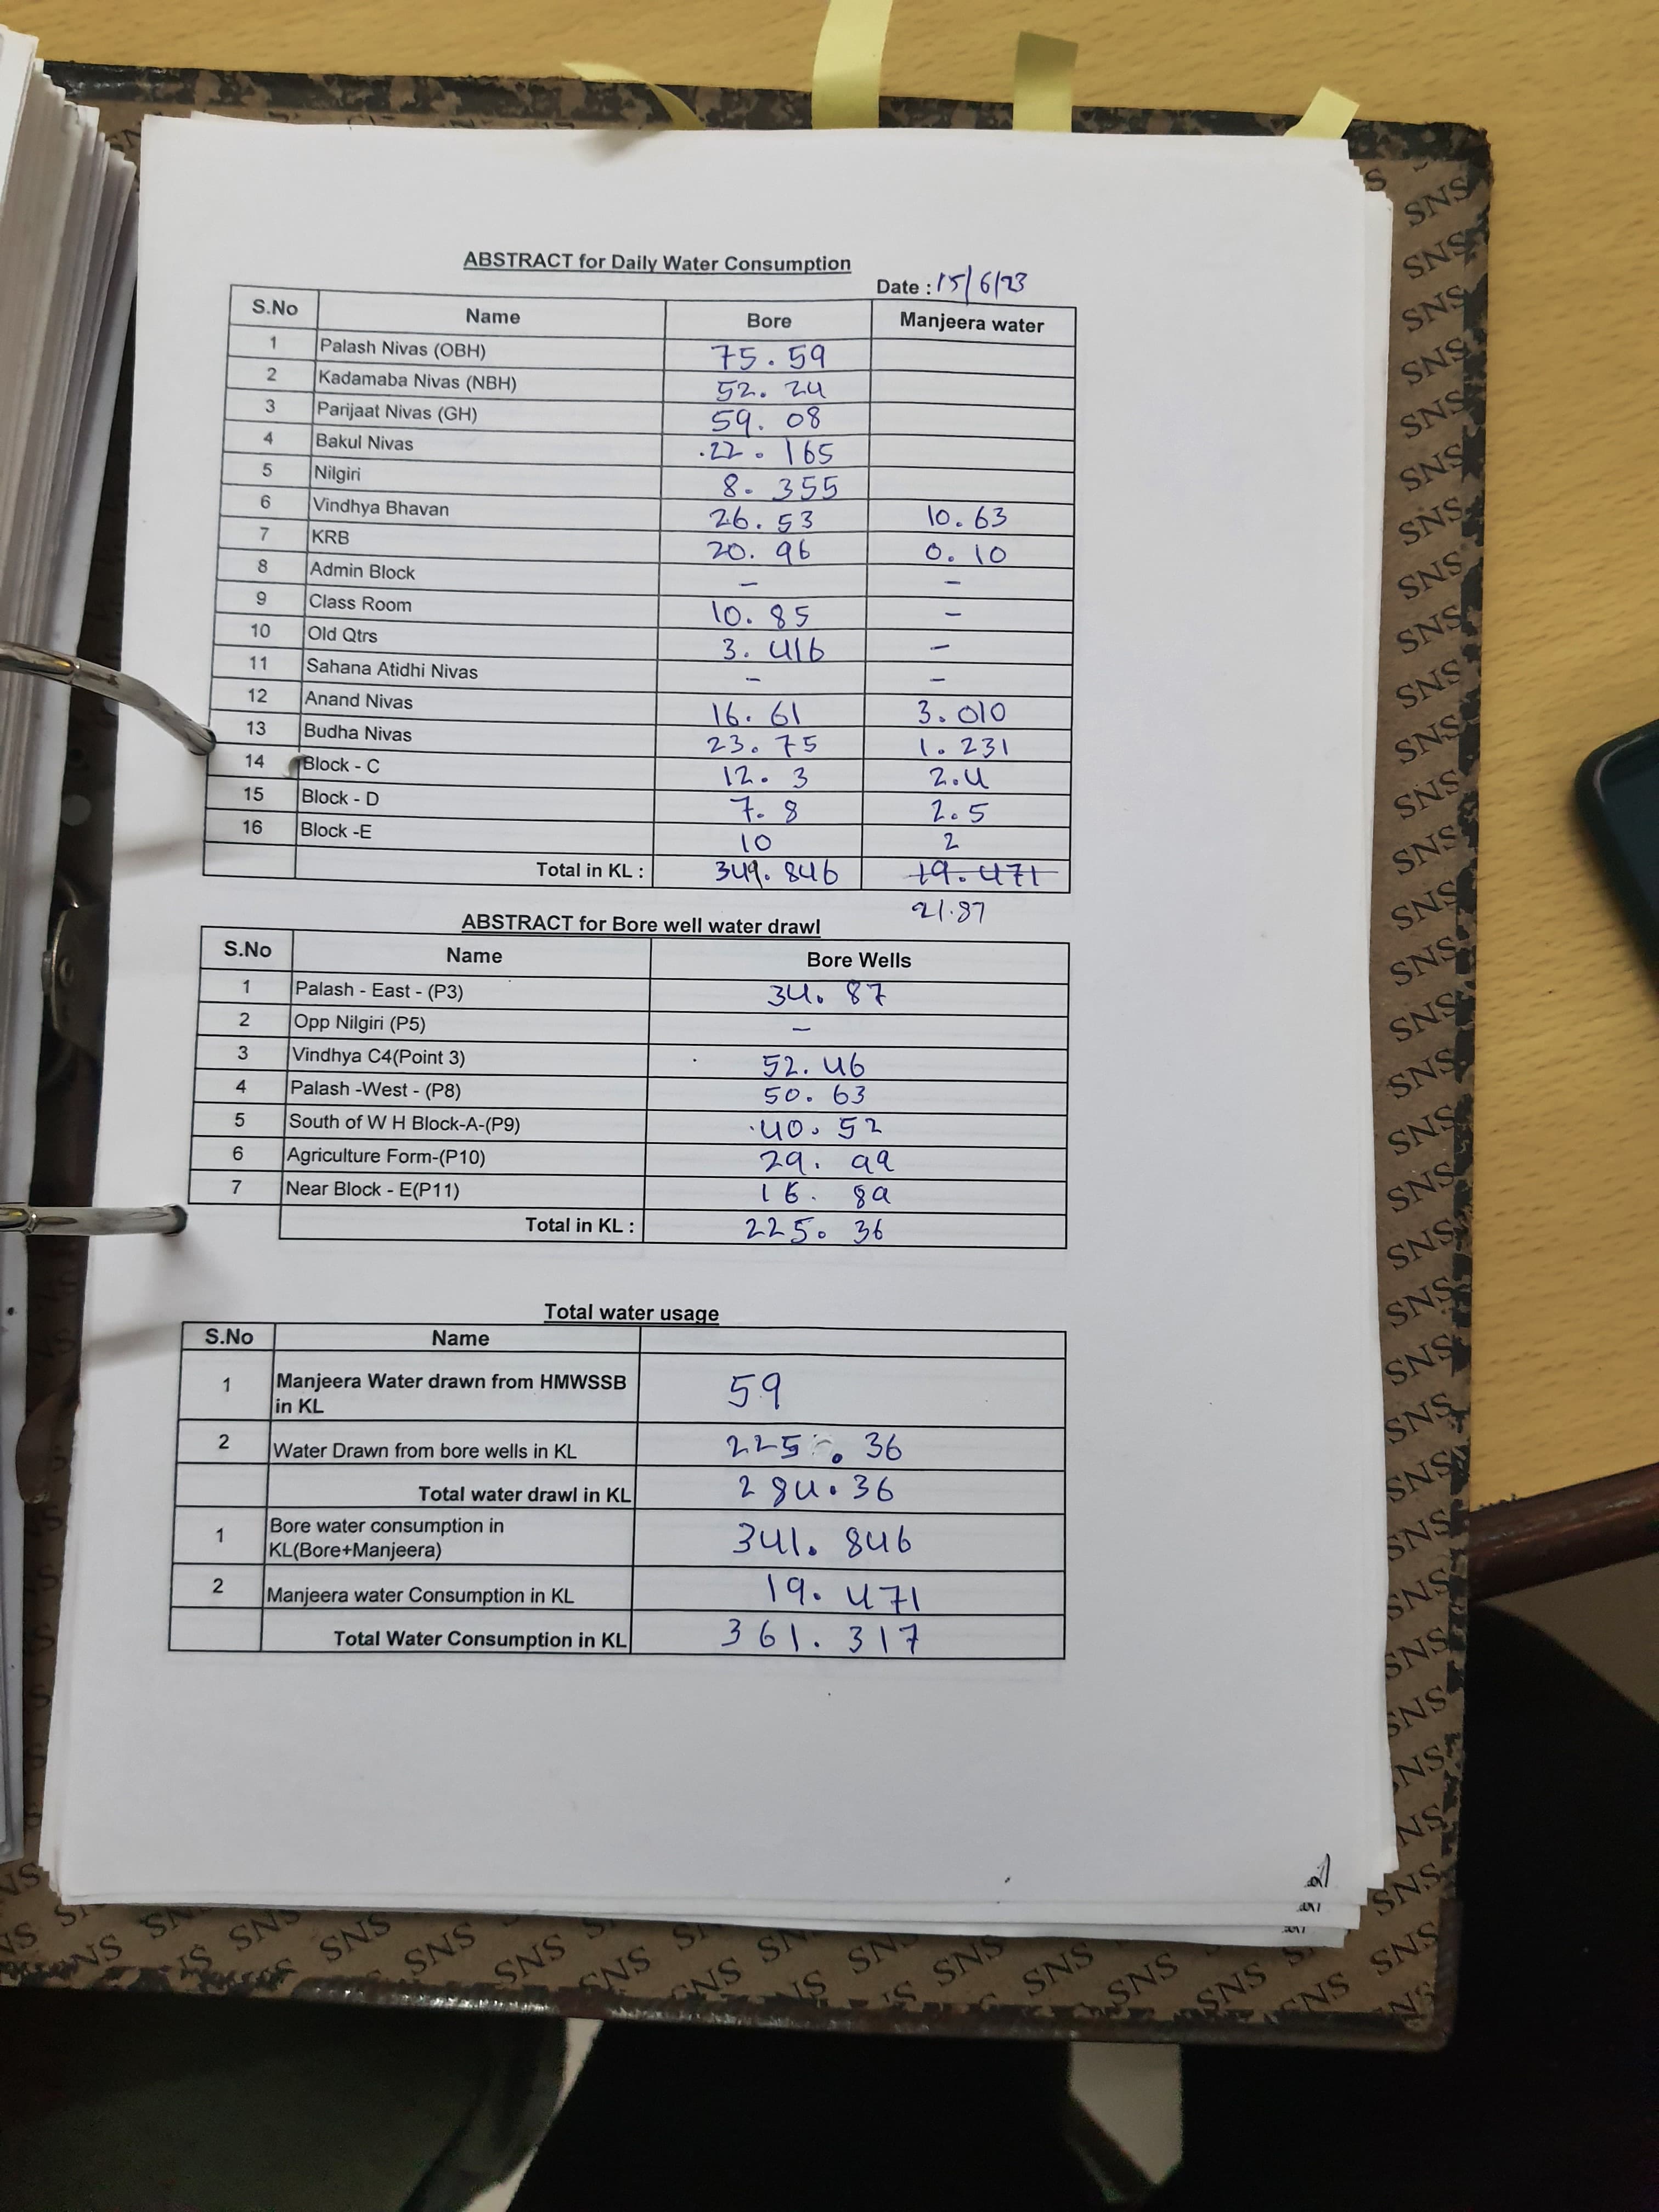 ABSTRACT for Daily Water Consumption
Date : 15/6/23
S.No Name Bore Manjeera water
1 Palash Nivas (OBH) 75.59
2 Kadamaba Nivas (NBH) 52.24
3 Parijaat Nivas (GH) 59.08
4 Bakul Nivas 22.165
5 Nilgiri 8.355
6 Vindhya Bhavan 26.53 10.63
7 KRB 20.96 0.10
8 Admin Block - -
9 Class Room 10.85 -
10 Old Qtrs 3.416 -
11 Sahana Atidhi Nivas - -
12 Anand Nivas 16.61 3.010
13 Budha Nivas 23.75 1.231
14 Block - C 12.3 2.4
15 Block - D 7.8 2.5
16 Block -E 10 2
Total in KL : 349.846 19.471
21.87
ABSTRACT for Bore well water drawl
S.No Name Bore Wells
1 Palash - East - (P3) 34.87
2 Opp Nilgiri (P5) -
3 Vindhya C4(Point 3) 52.46
4 Palash -West - (P8) 50.63
5 South of W H Block-A-(P9) 40.52
6 Agriculture Form-(P10) 29.99
7 Near Block - E(P11) 16.89
Total in KL : 225.36
Total water usage
S.No Name
1 Manjeera Water drawn from HMWSSB
in KL 59
2 Water Drawn from bore wells in KL 225.36
Total water drawl in KL 284.36
1 Bore water consumption in
KL(Bore+Manjeera) 341.846
2 Manjeera water Consumption in KL 19.471
Total Water Consumption in KL 361.317
SNS